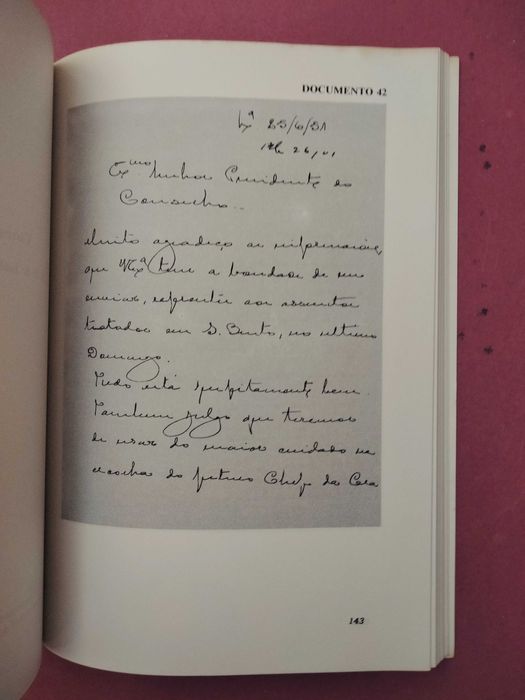 DOCUMENTO 42
Lxª 25/6/51
Exmo Senhor Presidente do
Conselho
Muito agradeço as informações,
que VExª teve a bondade de me
enviar, referente aos assuntos
tratados em S. Bento, no ultimo
Domingo.
Tudo está perfeitamente bem.
Tambem julgo que teremos
de usar do maior cuidado na
escolha do futuro Chefe da Casa
143